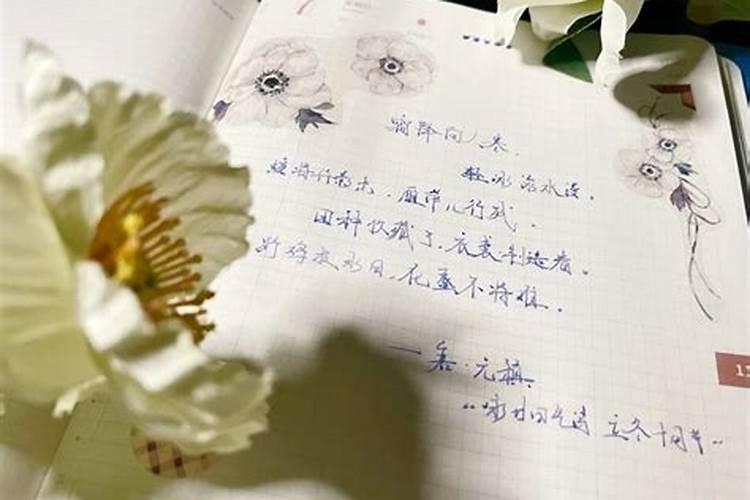 霜降向人寒.
轻冰渌水漫.
蟾将纤影出,雁带几行残.
田种收藏了,衣裘制造看。
野鸡投水日,化蜃不将难.
—唐·元稹
“咏廿四气诗 立冬十月节”